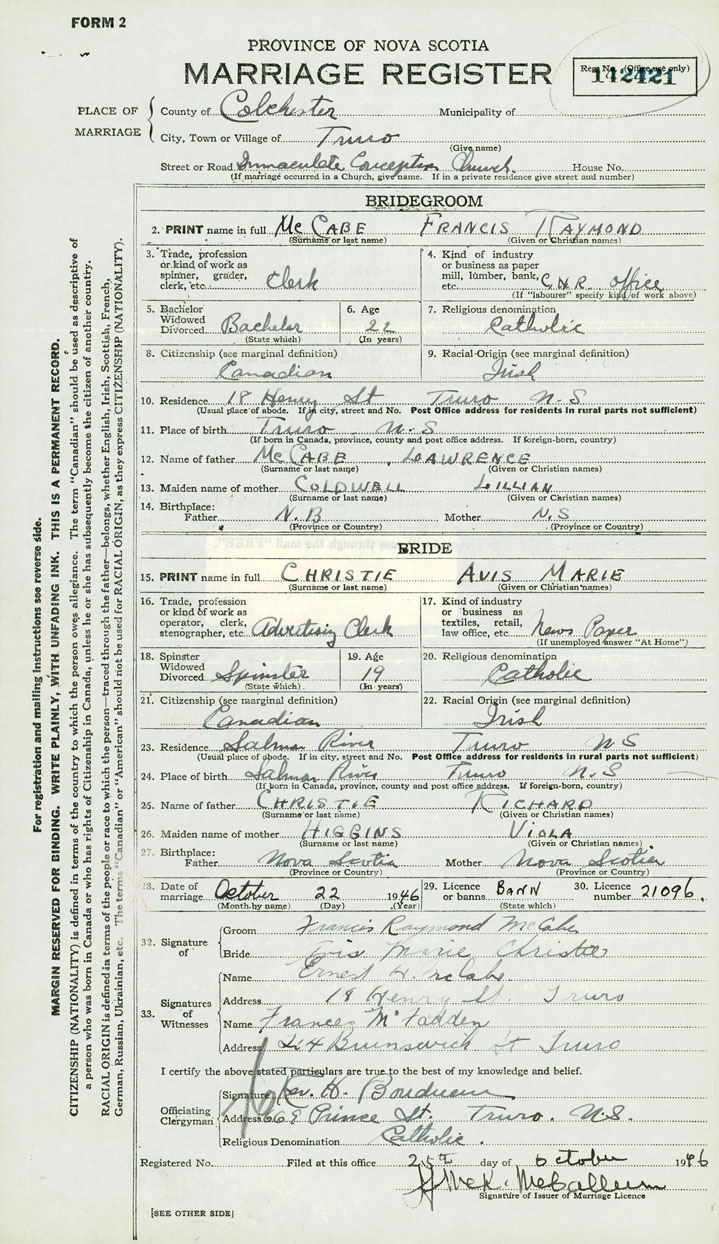 FORM 2
PROVINCE OF NOVA SCOTIA
MARRIAGE REGISTER
Reg. No. (Office use only)
142421
PLACE OF MARRIAGE
County of Colchester Municipality of
City, Town or Village of Truro
(Give name)
Street or Road Immaculate Conception Church. House No.
(If marriage occurred in a Church, give name. If in a private residence give street and number)
BRIDEGROOM
2. PRINT name in full McCABE FRANCIS RAYMOND
(Surname or last name) (Given or Christian names)
3. Trade, profession or kind of work as spinner, grader, clerk, etc. Clerk
4. Kind of industry or business as paper mill, lumber, bank, etc. C.N.R. office
(If "labourer" specify kind of work above)
5. Bachelor Widowed Divorced Bachelor
(State which)
6. Age 22
(In years)
7. Religious denomination
Catholic
8. Citizenship (see marginal definition)
Canadian
9. Racial Origin (see marginal definition)
Irish
10. Residence 18 Henry St Truro N.S
(Usual place of abode. If in city, street and No. Post Office address for residents in rural parts not sufficient)
11. Place of birth Truro N.S
(If born in Canada, province, county and post office address. If foreign-born, country)
12. Name of father McCABE LAWRENCE
(Surname or last name) (Given or Christian names)
13. Maiden name of mother COLDWELL LILLIAN
(Surname or last name) (Given or Christian names)
14. Birthplace:
Father N.B Mother N.S
(Province or Country) (Province or Country)
BRIDE
15. PRINT name in full CHRISTIE AVIS MARIE
(Surname or last name) (Given or Christian names)
16. Trade, profession or kind of work as operator, clerk, stenographer, etc. Advertising Clerk
17. Kind of industry or business as textiles, retail, law office, etc. News Paper
(If unemployed answer "At Home")
18. Spinster Widowed Divorced Spinster
(State which)
19. Age 19
(In years)
20. Religious denomination
Catholic
21. Citizenship (see marginal definition)
Canadian
22. Racial Origin (see marginal definition)
Irish
23. Residence Salmon River Truro N S
(Usual place of abode. If in city, street and No. Post Office address for residents in rural parts not sufficient)
24. Place of birth Salmon River Truro N.S
(If born in Canada, province, county and post office address. If foreign-born, country)
25. Name of father CHRISTIE RICHARD
(Surname or last name) (Given or Christian names)
26. Maiden name of mother HIGGINS VIOLA
(Surname or last name) (Given or Christian names)
27. Birthplace:
Father Nova Scotia Mother Nova Scotia
(Province or Country) (Province or Country)
28. Date of marriage October 22 1946
(Month by name) (Day) (Year)
29. Licence or banns BANN
(State which)
30. Licence number 21096.
32. Signature of
Groom Francis Raymond McCabe
Bride Avis Marie Christie
33. Signatures of Witnesses
Name Ernest H. McCabe
Address 18 Henry St Truro
Name Frances McFadden
Address 264 Brunswick St Truro
I certify the above stated particulars are true to the best of my knowledge and belief.
Officiating Clergyman
Signature Rev. H.
Address 669 Prince St. Truro. N.S.
Religious Denomination Catholic.
Registered No. Filed at this office 25th day of October 1946
McCallum
Signature of Issuer of Marriage Licence
[SEE OTHER SIDE]
For registration and mailing instructions see reverse side.
MARGIN RESERVED FOR BINDING. WRITE PLAINLY, WITH UNFADING INK. THIS IS A PERMANENT RECORD.
CITIZENSHIP (NATIONALITY) is defined in terms of the country to which the person owes allegiance. The term "Canadian" should be used as descriptive of
a person who was born in Canada or who has rights of Citizenship in Canada, unless he or she has subsequently become the citizen of another country.
RACIAL ORIGIN is defined in terms of the people or race to which the person—traced through the father—belongs, whether English, Irish, Scottish, French,
German, Russian, Ukrainian, etc. The terms "Canadian" or "American" should not be used for RACIAL ORIGIN, as they express CITIZENSHIP (NATIONALITY).